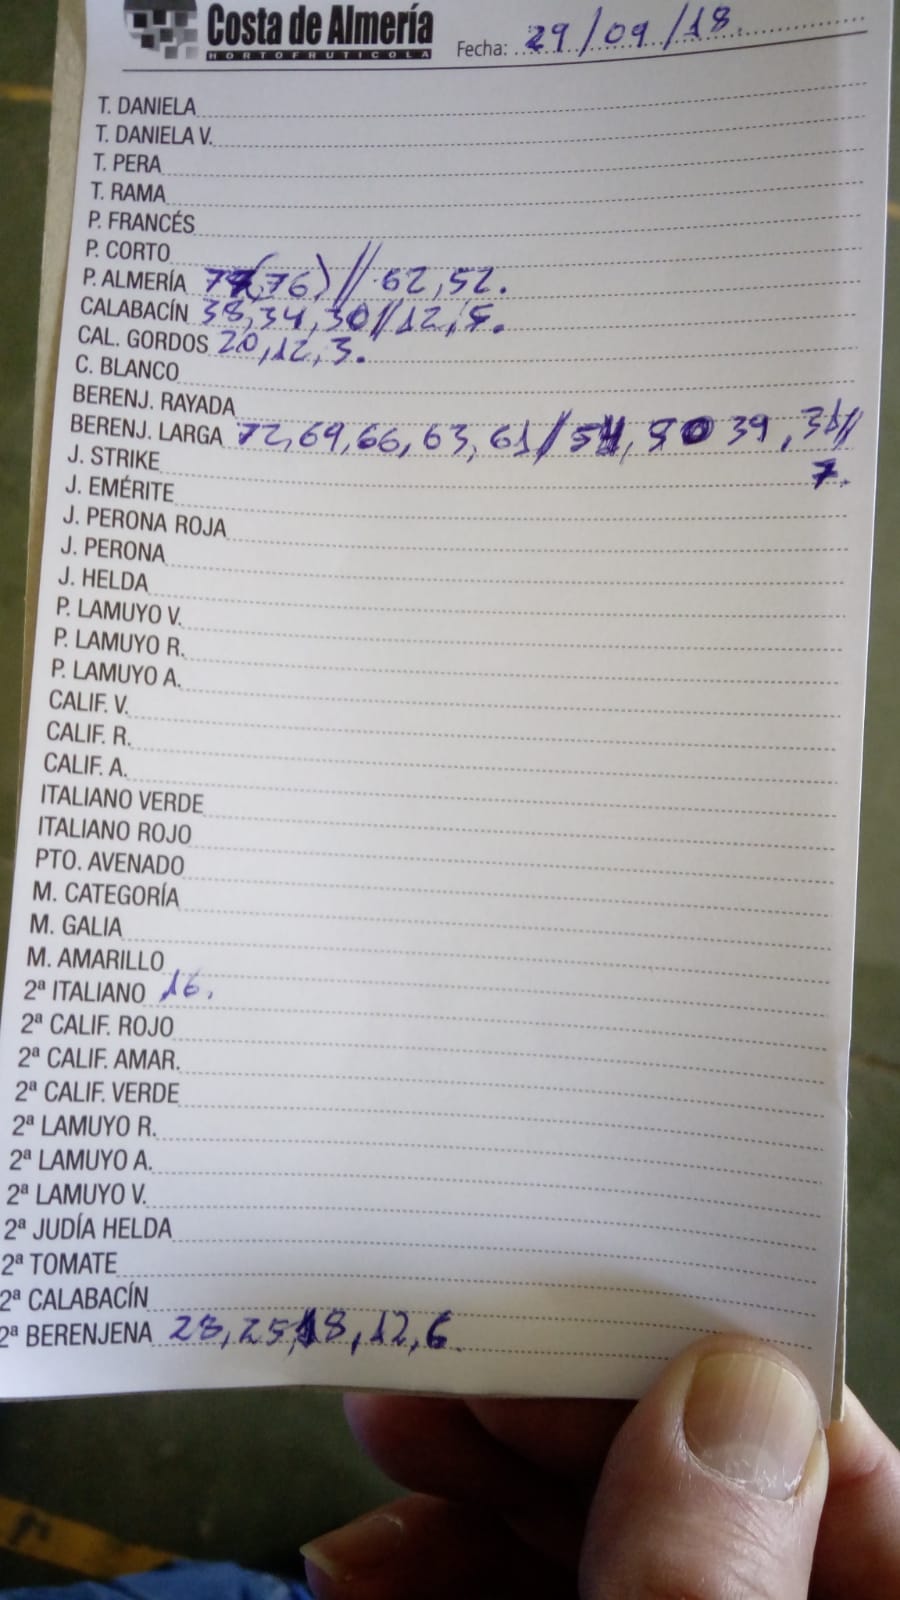 Costa de Almería
HORTOFRUTICOLA
Fecha: 29/09/18
T. DANIELA
T. DANIELA V.
T. PERA
T. RAMA
P. FRANCÉS
P. CORTO
P. ALMERÍA (76) // 62, 52.
CALABACÍN 38, 34, 30 // 12, 5.
CAL. GORDOS 20, 12, 3.
C. BLANCO
BERENJ. RAYADA
BERENJ. LARGA 72, 69, 66, 63, 61 / 50 39, //
7.
J. STRIKE
J. EMÉRITE
J. PERONA ROJA
J. PERONA
J. HELDA
P. LAMUYO V.
P. LAMUYO R.
P. LAMUYO A.
CALIF. V.
CALIF. R.
CALIF. A.
ITALIANO VERDE
ITALIANO ROJO
PTO. AVENADO
M. CATEGORÍA
M. GALIA
M. AMARILLO
2ª ITALIANO 16.
2ª CALIF. ROJO
2ª CALIF. AMAR.
2ª CALIF. VERDE
2ª LAMUYO R.
2ª LAMUYO A.
2ª LAMUYO V.
2ª JUDÍA HELDA
2ª TOMATE
2ª CALABACÍN
2ª BERENJENA 28, 25, 18, 12, 6.